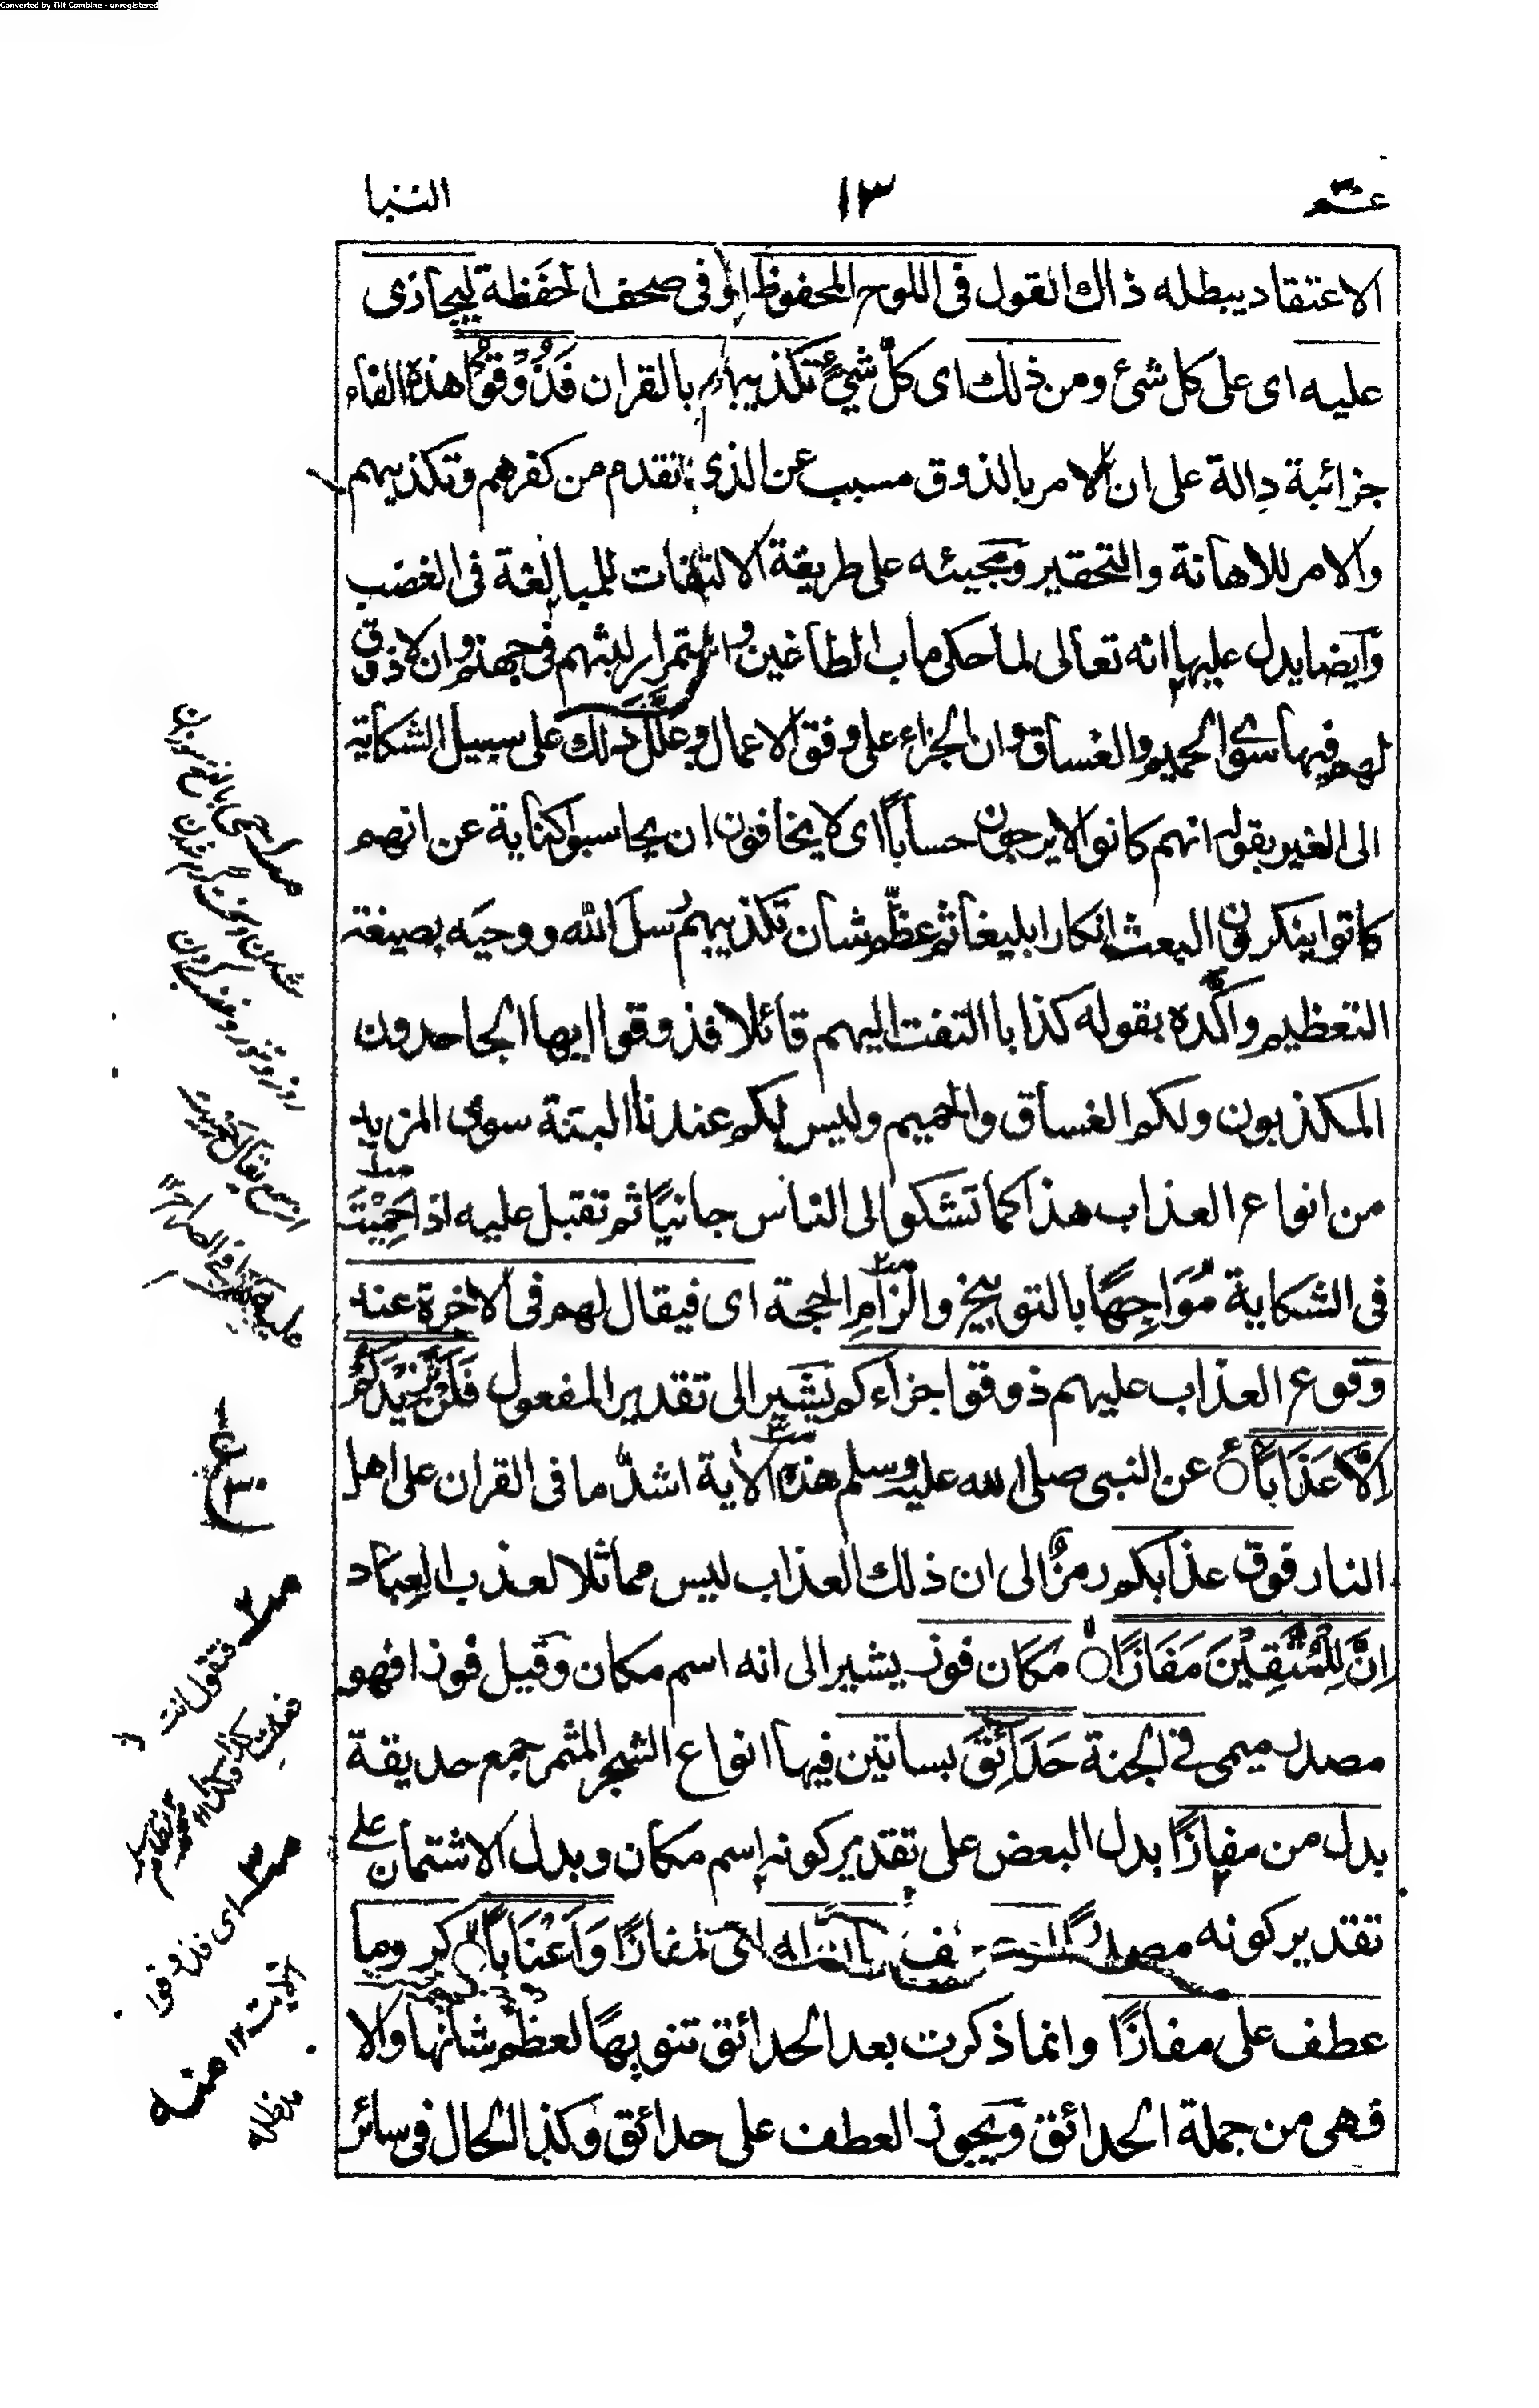 Converted by Tiff Combine - unregistered
عـمّ ١٣ النبا
الاعتقاد يبطله ذاك القول فى اللوح المحفوظ او فى صحف الحَفَظة ليجازى
عليه اى على كل شئ ومن ذلك اى كلّ شئٍ تكذيبهم بالقران فَذُوْقُوْا هذه الفاء
جزائية دالة على ان الامر بالذوق مسبب عن الذى تقدم من كفرهم وتكذيبهم
والامر للاهانة والتحقير ومجيئه على طريقة الالتفات للمبالغة فى الغضب
وايضا يدل عليها انه تعالى لما حكى ماب الطاغين واستمرار لبثهم فى جهنم وان لا ذوق
لهم فيها سوى الحميم والغساق وان الجزاء على وفق الاعمال وعلل ذلك على سبيل الشكاية
الى الغير بقوله انهم كانوا لا يرجون حسابًا اى لا يخافون ان يحاسبوا كناية عن انهم
كانوا ينكرون البعث انكارا بليغا ثم عظّم شان تكذيبهم رسل الله ووحيه بصيغة
التعظيم واكّده بقوله كذابا التفت اليهم قائلا فذوقوا ايها الجاحدون
المكذبون ولكم الغساق والحميم وليس لكم عندنا البتة سوى المزيد
من انواع العذاب هذا كما تشكو الى الناس جانيًا ثم تقبل عليه اذا حَمِيْتَ
فى الشكاية مُوَاجِهًا بالتوبيخ والزام الحجة اى فيقال لهم فى الاخرة عند
وقوع العذاب عليهم ذوقوا جزاءكم يشير الى تقدير المفعول فَلَنْ نَّزِيْدَكُمْ
اِلَّا عَذَابًا ع عن النبى صلى الله عليه وسلم هذه الاية اشدّ ما فى القران على اهل
النار فوق عذابكم رمزٌ الى ان ذلك العذاب ليس مماثلا لعذب العباد
اِنَّ لِلْمُتَّقِيْنَ مَفَازًا مكان فوز يشير الى انه اسم مكان وقيل فوزا فهو
مصدر ميمى فى الجنة حَدَآئِقَ بساتين فيها انواع الشجر المثمر جمع حديقة
بدل من مفازًا بدل البعض على تقدير كونه اسم مكان وبدل الاشتمال على
تقدير كونه مصدرًا مفازًا وَاَعْنَابًا كروما
عطف على مفازًا وانما ذكرت بعد الحدائق تنويهًا لعظم شانها والا
فهى من جملة الحدائق ويجوز العطف على حدائق وكذا الحال فى سائر
فتقول انت
اى فذوقوا
١٢ منه